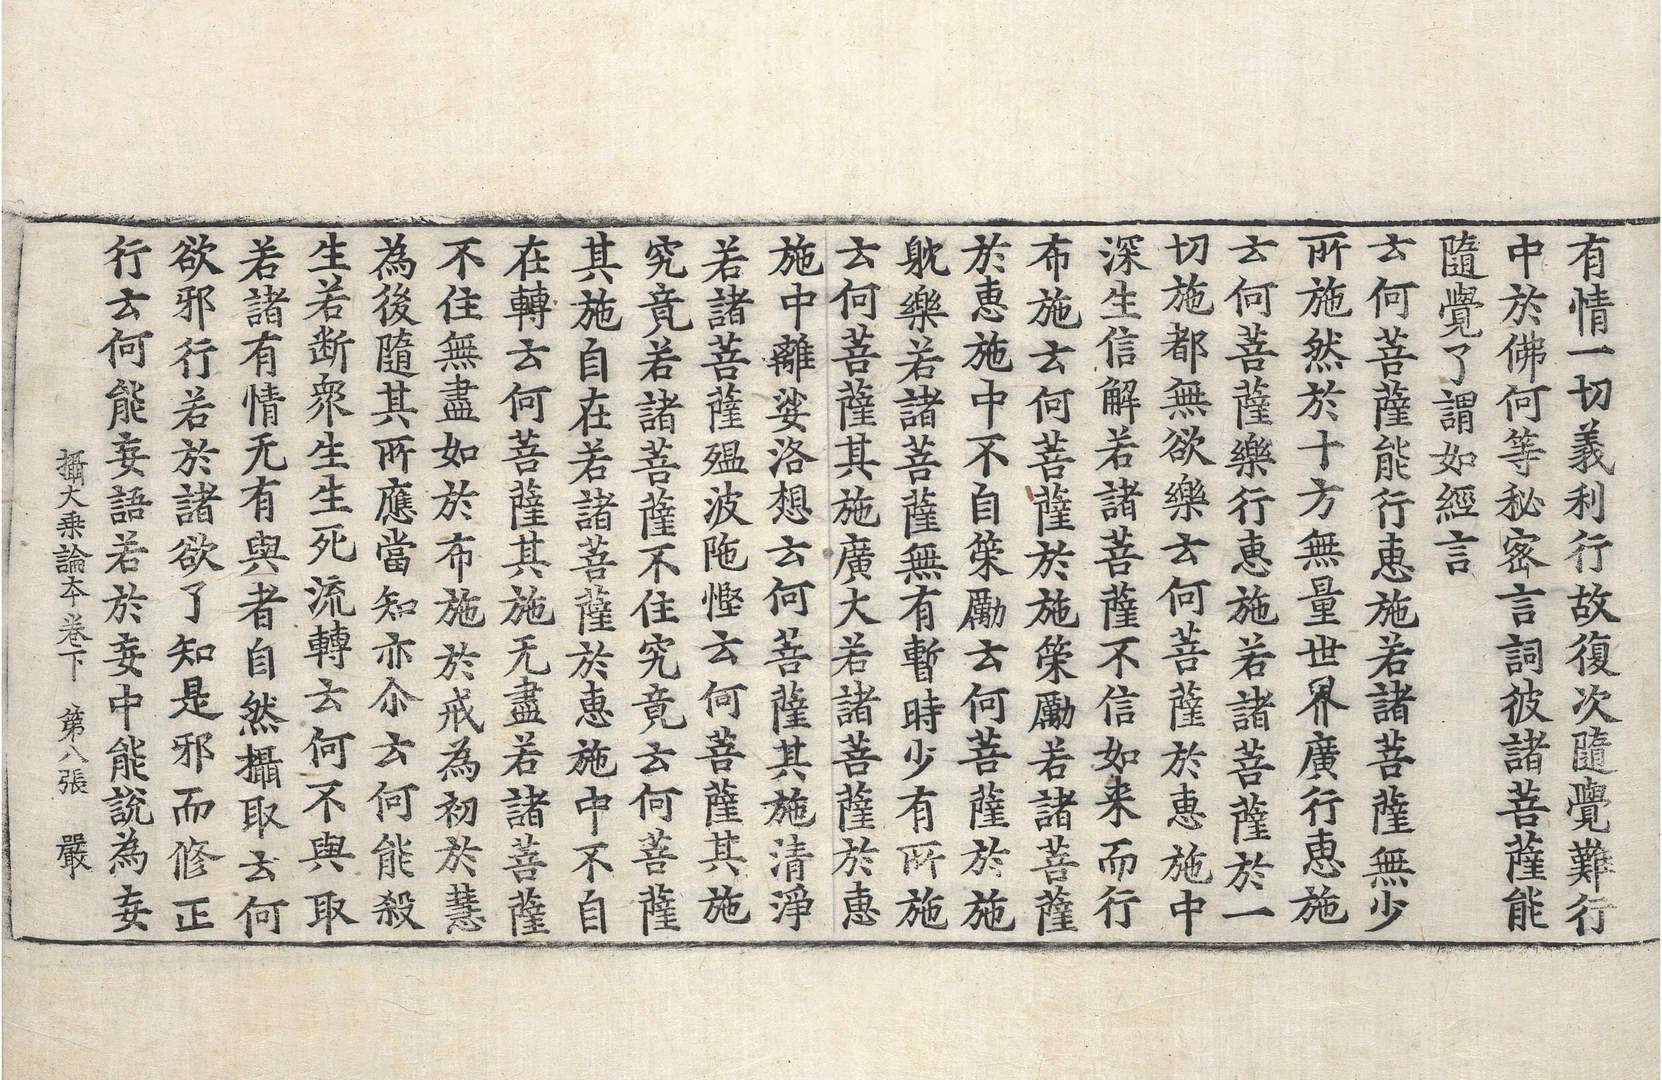 有情一切義利行故復次隨覺難行
中於佛何等秘密言詞彼諸菩薩能
隨覺了謂如經言
云何菩薩能行惠施若諸菩薩無少
所施然於十方無量世界廣行惠施
云何菩薩樂行惠施若諸菩薩於一
切施都無欲樂云何菩薩於惠施中
深生信解若諸菩薩不信如来而行
布施云何菩薩於施策勵若諸菩薩
於惠施中不自策勵云何菩薩於施
躭樂若諸菩薩無有暫時少有所施
云何菩薩其施廣大若諸菩薩於惠
施中離娑洛想云何菩薩其施清淨
若諸菩薩殟波陁慳云何菩薩其施
究竟若諸菩薩不住究竟云何菩薩
其施自在若諸菩薩於惠施中不自
在轉云何菩薩其施无盡若諸菩薩
不住無盡如於布施於戒為初於慧
為後隨其所應當知亦尒云何能殺
生若断衆生生死流轉云何不與取
若諸有情无有與者自然攝取云何
欲邪行若於諸欲了知是邪而修正
行云何能妄語若於妄中能說為妄
攝大乗論本卷下 第八張 嚴